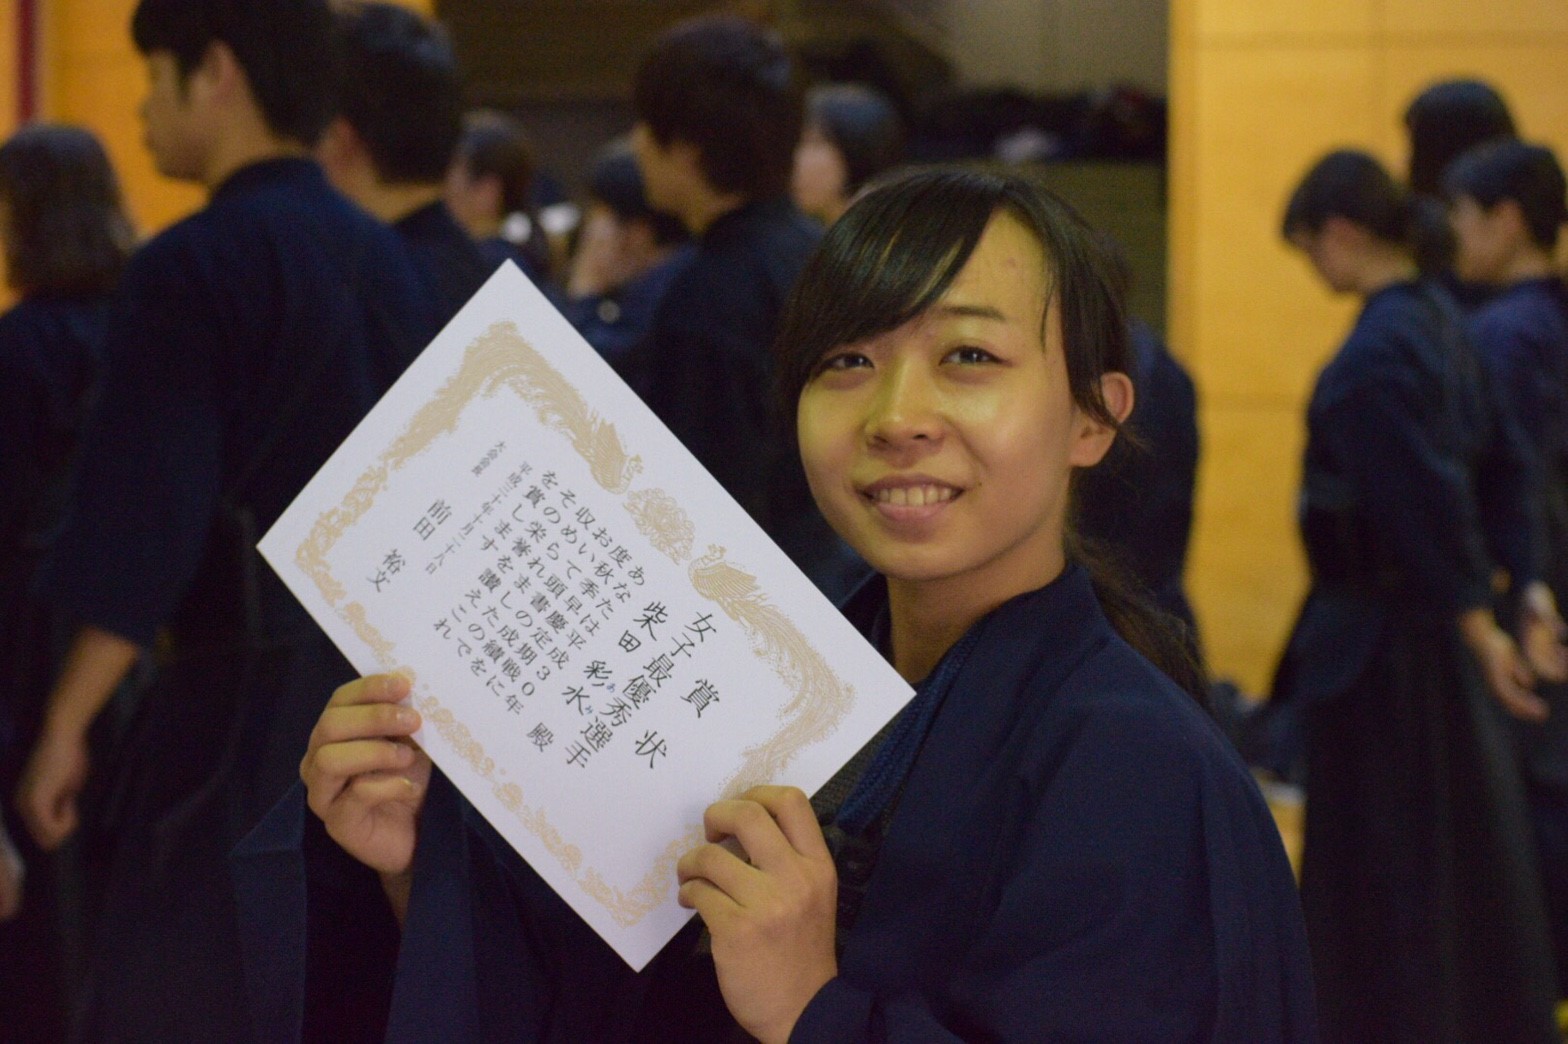 賞状
女子最優秀選手
柴田 彩水 殿
あなたは平成30年
度秋季早慶定期戦に
おいて頭書の成績を
収められましたので
その栄誉を讃えこれ
を賞します
平成三十年十月二十八日
前田 裕文